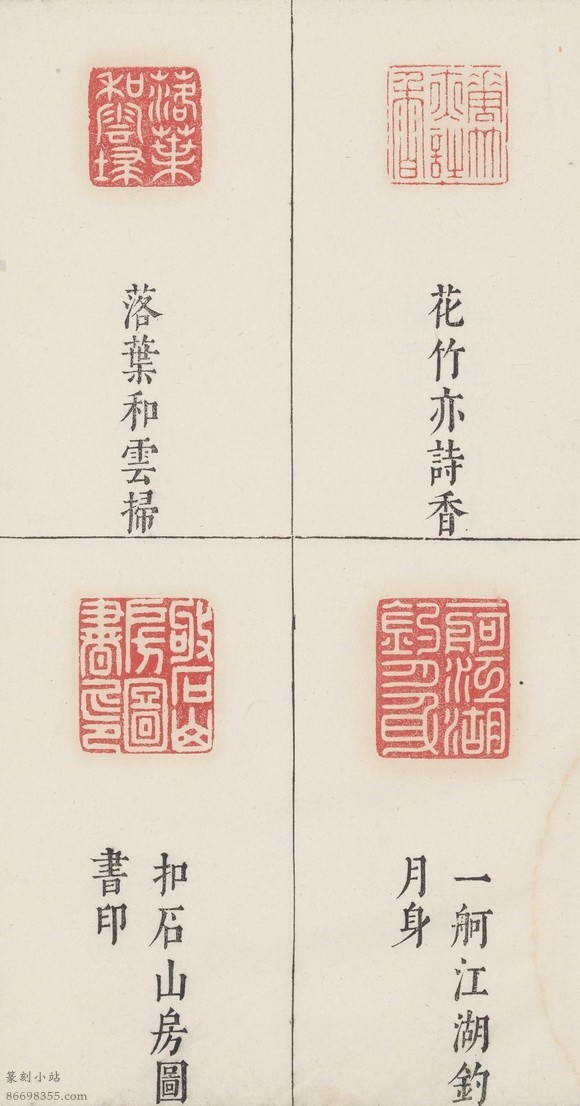 花竹亦詩香
落葉和雲掃
落葉和雲掃
一舸江湖釣
月身
扣石山房圖
書印
篆刻小站
86698355.com